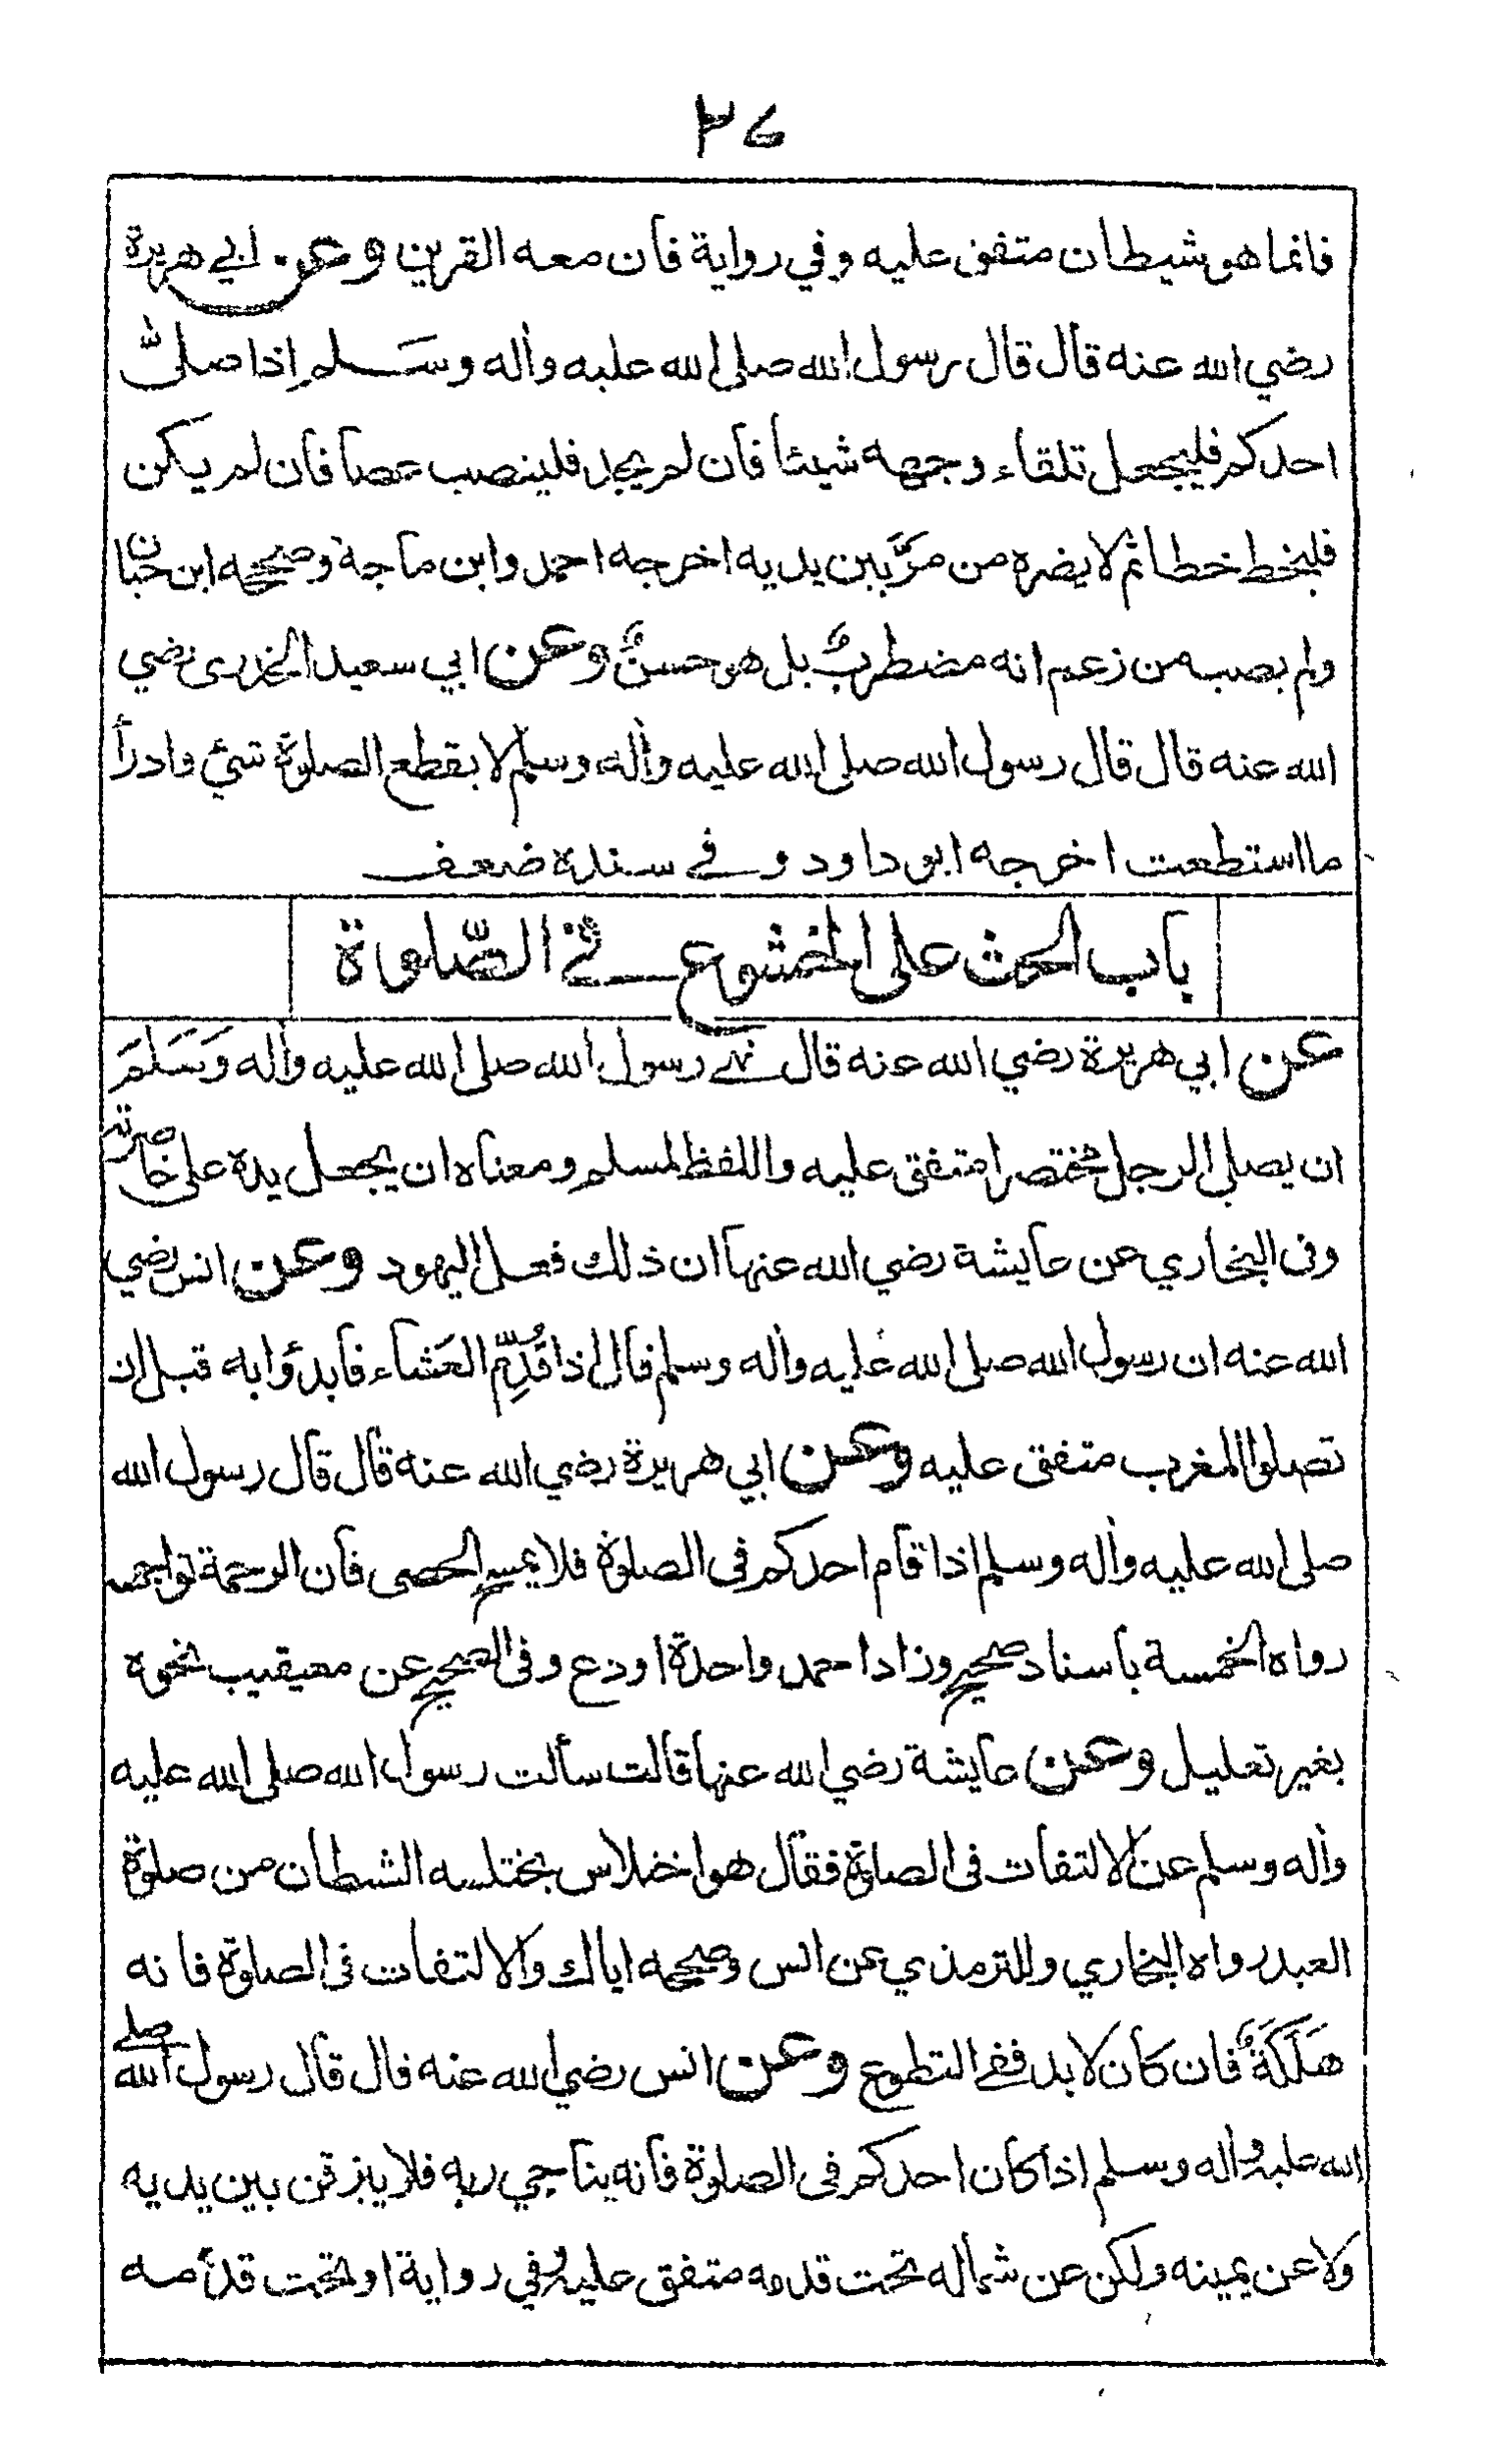 ٣٤
فانما هو شيطان متفق عليه وفي رواية فان معه القرين وعن ابي هريرة
رضي الله عنه قال قال رسول الله صلى الله عليه واٰله وسَلم اِذا صلىّ
احدكم فليجعل تلقاء وجهه شيئا فان لم يجد فلينصب عصا فان لم يكن
فليخط خطا ثم لا يضره من مرَّ بين يديه اخرجه احمد وابن ماجة وصححه ابن حبّان
ولم يصب من زعم انه مضطربٌ بل هو حسنٌ وعن ابي سعيد الخدرى رضي
الله عنه قال قال رسول الله صلى الله عليه واٰله وسلم لا يقطع الصلوة شئ وادرأ
ما استطعت اخرجه ابو داود وفي سنده ضعف
باب الحث على الخشوع في الصّلوة
عن ابي هريرة رضي الله عنه قال نهى رسول الله صلى الله عليه واٰله وَسَلمَ
ان يصلي الرجل مختصرا متفق عليه واللفظ لمسلم ومعناه ان يجعل يده على خاصرته
وفى البخاري عن عايشة رضي الله عنها ان ذلك فعل اليهود وعن انس رضي
الله عنه ان رسول الله صلى الله عليه واٰله وسلم قال اذا قُدِّم العَشاء فابدؤا به قبل ان
تصلوا المغرب متفق عليه وعن ابي هريرة رضي الله عنه قال قال رسول الله
صلى الله عليه واٰله وسلم اذا قام احدكم فى الصلوة فلا يمسح الحصى فان الرحمة تواجهه
رواه الخمسة باسناد صحيح وزاد احمد واحدة او دع وفى الصحيح عن معيقيب نحوه
بغير تعليل وعن عايشة رضي الله عنها قالت سألت رسول الله صلى الله عليه
واٰله وسلم عن الالتفات فى الصلوة فقال هو اختلاس يختلسه الشيطان من صلوة
العبد رواه البخاري وللترمذي عن انس وصححه اياك والالتفات فى الصلوة فانه
هَلَكَةٌ فان كان لا بد ففي التطوع وعن انس رضي الله عنه قال قال رسول الله صلى
الله عليه واٰله وسلم اذا كان احدكم فى الصلوة فانه يناجي ربه فلا يبزقن بين يديه
ولا عن يمينه ولكن عن شماله تحت قدمه متفق عليه وفي رواية او تحت قدمه